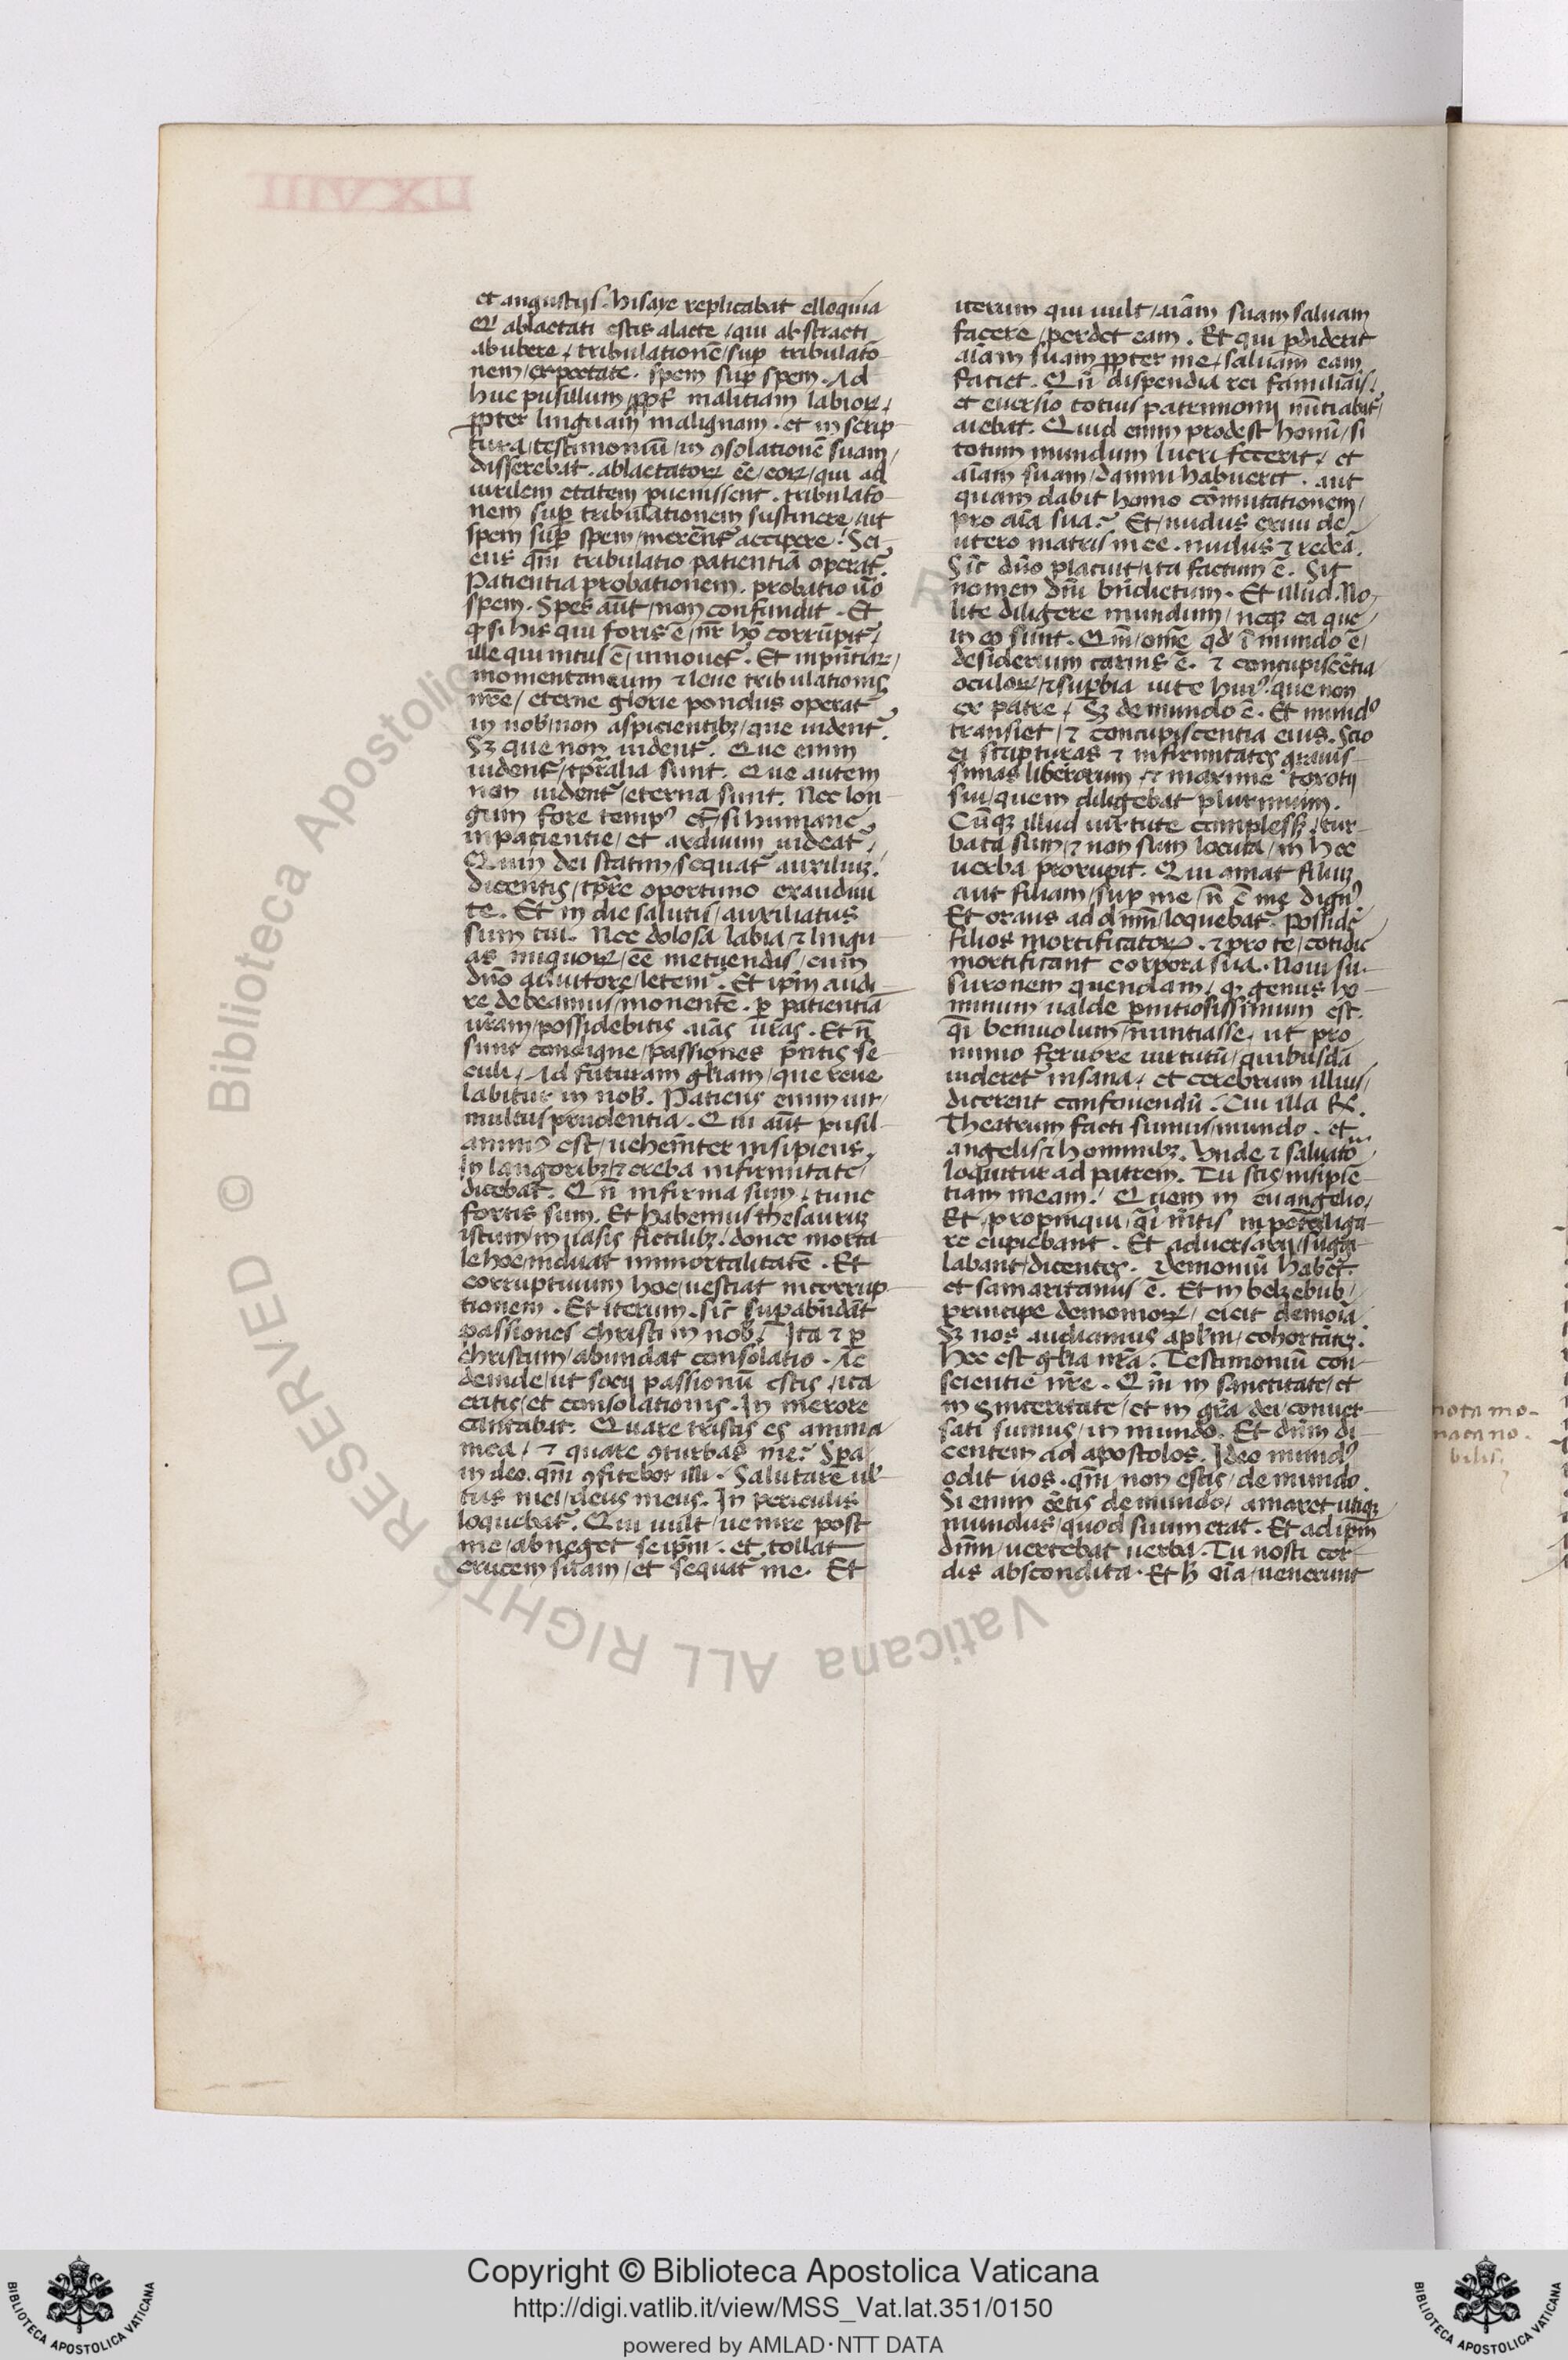 et angustijs. hisaye replicabat elloquia
Q' ablactati estis alacte / qui abstracti
abubere / tribulationē / suꝑ tribulatō
nem / expectate. spem suꝑ spem. Ad
huc pusillum / ꝓpt̄ malitiam labioꝝ /
ꝓpter linguam malignam. et in scrip
tura / testimoniū / in ꝯsolationē suam /
disserebat. ablactatoꝝ ēē / eoꝝ / qui ad
uirilem etatem ꝑuenissent. tribulatō
nem suꝑ tribulationem sustinere / ut
spem suꝑ spem / merent̄ accipere. Sci
ens qm̄ tribulatio patientiā operat̄.
Patientia probationem. probatio ūo
spem. Spes aūt / non confundit. Et
ꝙ si his qui foris ē / nr̄ hō corrūpit̄ /
ille qui intus ē / innouet̄. Et in pn̄tiaꝝ /
momentaneum ⁊ leue tribulationis
nr̄e / eterne glorie pondus operat̄
in nob̄ / non aspicientibꝫ / que uident̄.
Sꝫ que non uident̄. Que enim
uident̄ / tꝑralia sunt. Que autem
non uident̄ / eterna sunt. Nec lon
gum fore temp⁹ et̄ / si humane
inpatientie / et arduum uideat̄ /
Quin dei statim / sequat̄ auxiliuꝫ.
dicentis / tꝑre oportuno exaudiui
te. Et in die salutis / auxiliatus
sum tui. Nec dolosa labia / ⁊ lingu
as iniquoꝝ / ēē metuendis / cum
dn̄o adiutore / letem̄. Et ip̄m audi
re debeamus / monentē. ꝑ patientiā
ur̄am / possidebitis aiās ur̄as. Et n̄
sunt condigne / passiones p̄ntis se
culi / Ad futuram gl̄iam / que reue
labitur in nob̄. Patiens enim uir /
multus prudentia. Qui aūt pusil
animis est / uehem̄ter insipiens.
In langoribꝫ / ⁊ creba infirmitate /
dicebat. Qn̄ infirma sum / tunc
fortis sum. Et habemus thesauruꝫ
istum / in uasis fictilibꝫ / donec morta
le hoc / induat immortalitatē. Et
corruptiuum hoc / uestiat incorrup
tionem. Et iterum. sic̄ suꝑabūdāt
passiones christi in nob̄. Ita ⁊ ꝑ
christum / abundat consolatio. Ac
deinde / ut socij passionū estis / ita
eritis / et consolationis. In merore
cantabat. Quare tristis es anima
mea / ⁊ quare ꝯturbas me? Spera
in deo. qm̄ ꝯfitebor illi. Salutare ul̄
tus mei / deus meus. In periculis
loquebat̄. Qui uult / uenire post
me / abneget se ip̄m. et tollat
crucem suam / et sequat̄ me. Et
iterum qui uult / aiām suam saluam
facere / perdet eam. Et qui ꝑdiderit
aiām suam ꝓpter me / saluam eam
faciet. Qn̄ dispendia rei familiāis /
et euersio totius patrimonij nūtiabat̄ /
aiebat. Quid enim prodest homī / si
totum mundum lucri fecerit / et
aiām suam / damni habuerit. aut
quam dabit homo cōmutationem /
pro aiā sua? Et / nudus exiui de
utero matris mee. nudus ⁊ redeā.
Sic̄ dn̄o placuit / ita factum ē. Sit
nomen dn̄i bn̄dictum. Et illud. No
lite diligere mundum / neqꝫ ea que
in eo sunt. Qm̄ / om̄e qd̄ ī mundo ē /
desiderium carnis ē. ⁊ concupiscētia
oculoꝝ / ⁊ suꝑbia uite hui⁹. que non
ex patre / Sꝫ de mundo ē. Et mund⁹
transiet / ⁊ concupiscentia eius. Scio
ei scripturas ⁊ infirmitates grauis
simas liberorum / ⁊ maxime toxotij
sui / quem diligebat plurimum.
Cūqꝫ illud uirtute complessꝫ / tur
bata sum / ⁊ non sum locuta / in hec
uerba prorupit. Qui amat filiuꝫ
aut filiam / suꝑ me / n̄ ē me dign⁹.
Et orans ad dn̄m / loquebat̄. posside
filios mortificatoꝝ. ⁊ pro te / cotidie
mortificant corpora sua. Noui su
suronem quendam / ꝙ genus ho
minum ualde ꝑnitiosissimum est.
qi beniuolum / nuntiasse / ut pro
nimio feruore uirtutū / quibusdā
uideret̄ insana / et cerebrum illius /
dicerent confouendū. Cui illa Rx̄.
Theatrum facti sumus / mundo. et
angelis / ⁊ hominibꝫ. Vnde ⁊ saluator
loquitur ad patrem. Tu scis / insipiē
tiam meam. Quem in euangelio /
Et / propinqui / q̄i m̄tis inpotē / liga
re cupiebant. Et aduersarij / sugil
labant / dicentes. Demoniū habet.
et samaritanus ē. Et in belzebub /
principe demonioꝝ / eicit demoīa.
Sꝫ nos audiamus ap̄lm / cohortātē.
hec est gl̄ia nr̄a. Testimoniū con
scientie nr̄e. Qm̄ in sanctitate / et
in sinceritate / et in gr̄a dei / conuer
sati sumus / in mundo. Et dn̄m di
centem ad apostolos. Ideo mund⁹
odit uos. qm̄ non estis / de mundo.
Si enim eētis de mundo / amaret utiqꝫ
mundus / quod suum erat. Et ad ip̄m
dn̄m / uertebat uerba. Tu nosti cor
dis abscondita. Et h̄ oīa / uenerunt
nota mo-
bilis
Copyright © Biblioteca Apostolica Vaticana
http://digi.vatlib.it/view/MSS_Vat.lat.351/0150
powered by AMLAD·NTT DATA
BIBLIOTECA APOSTOLICA VATICANA
BIBLIOTECA APOSTOLICA VATICANA
© Biblioteca Apostolica Vaticana ALL RIGHTS RESERVED